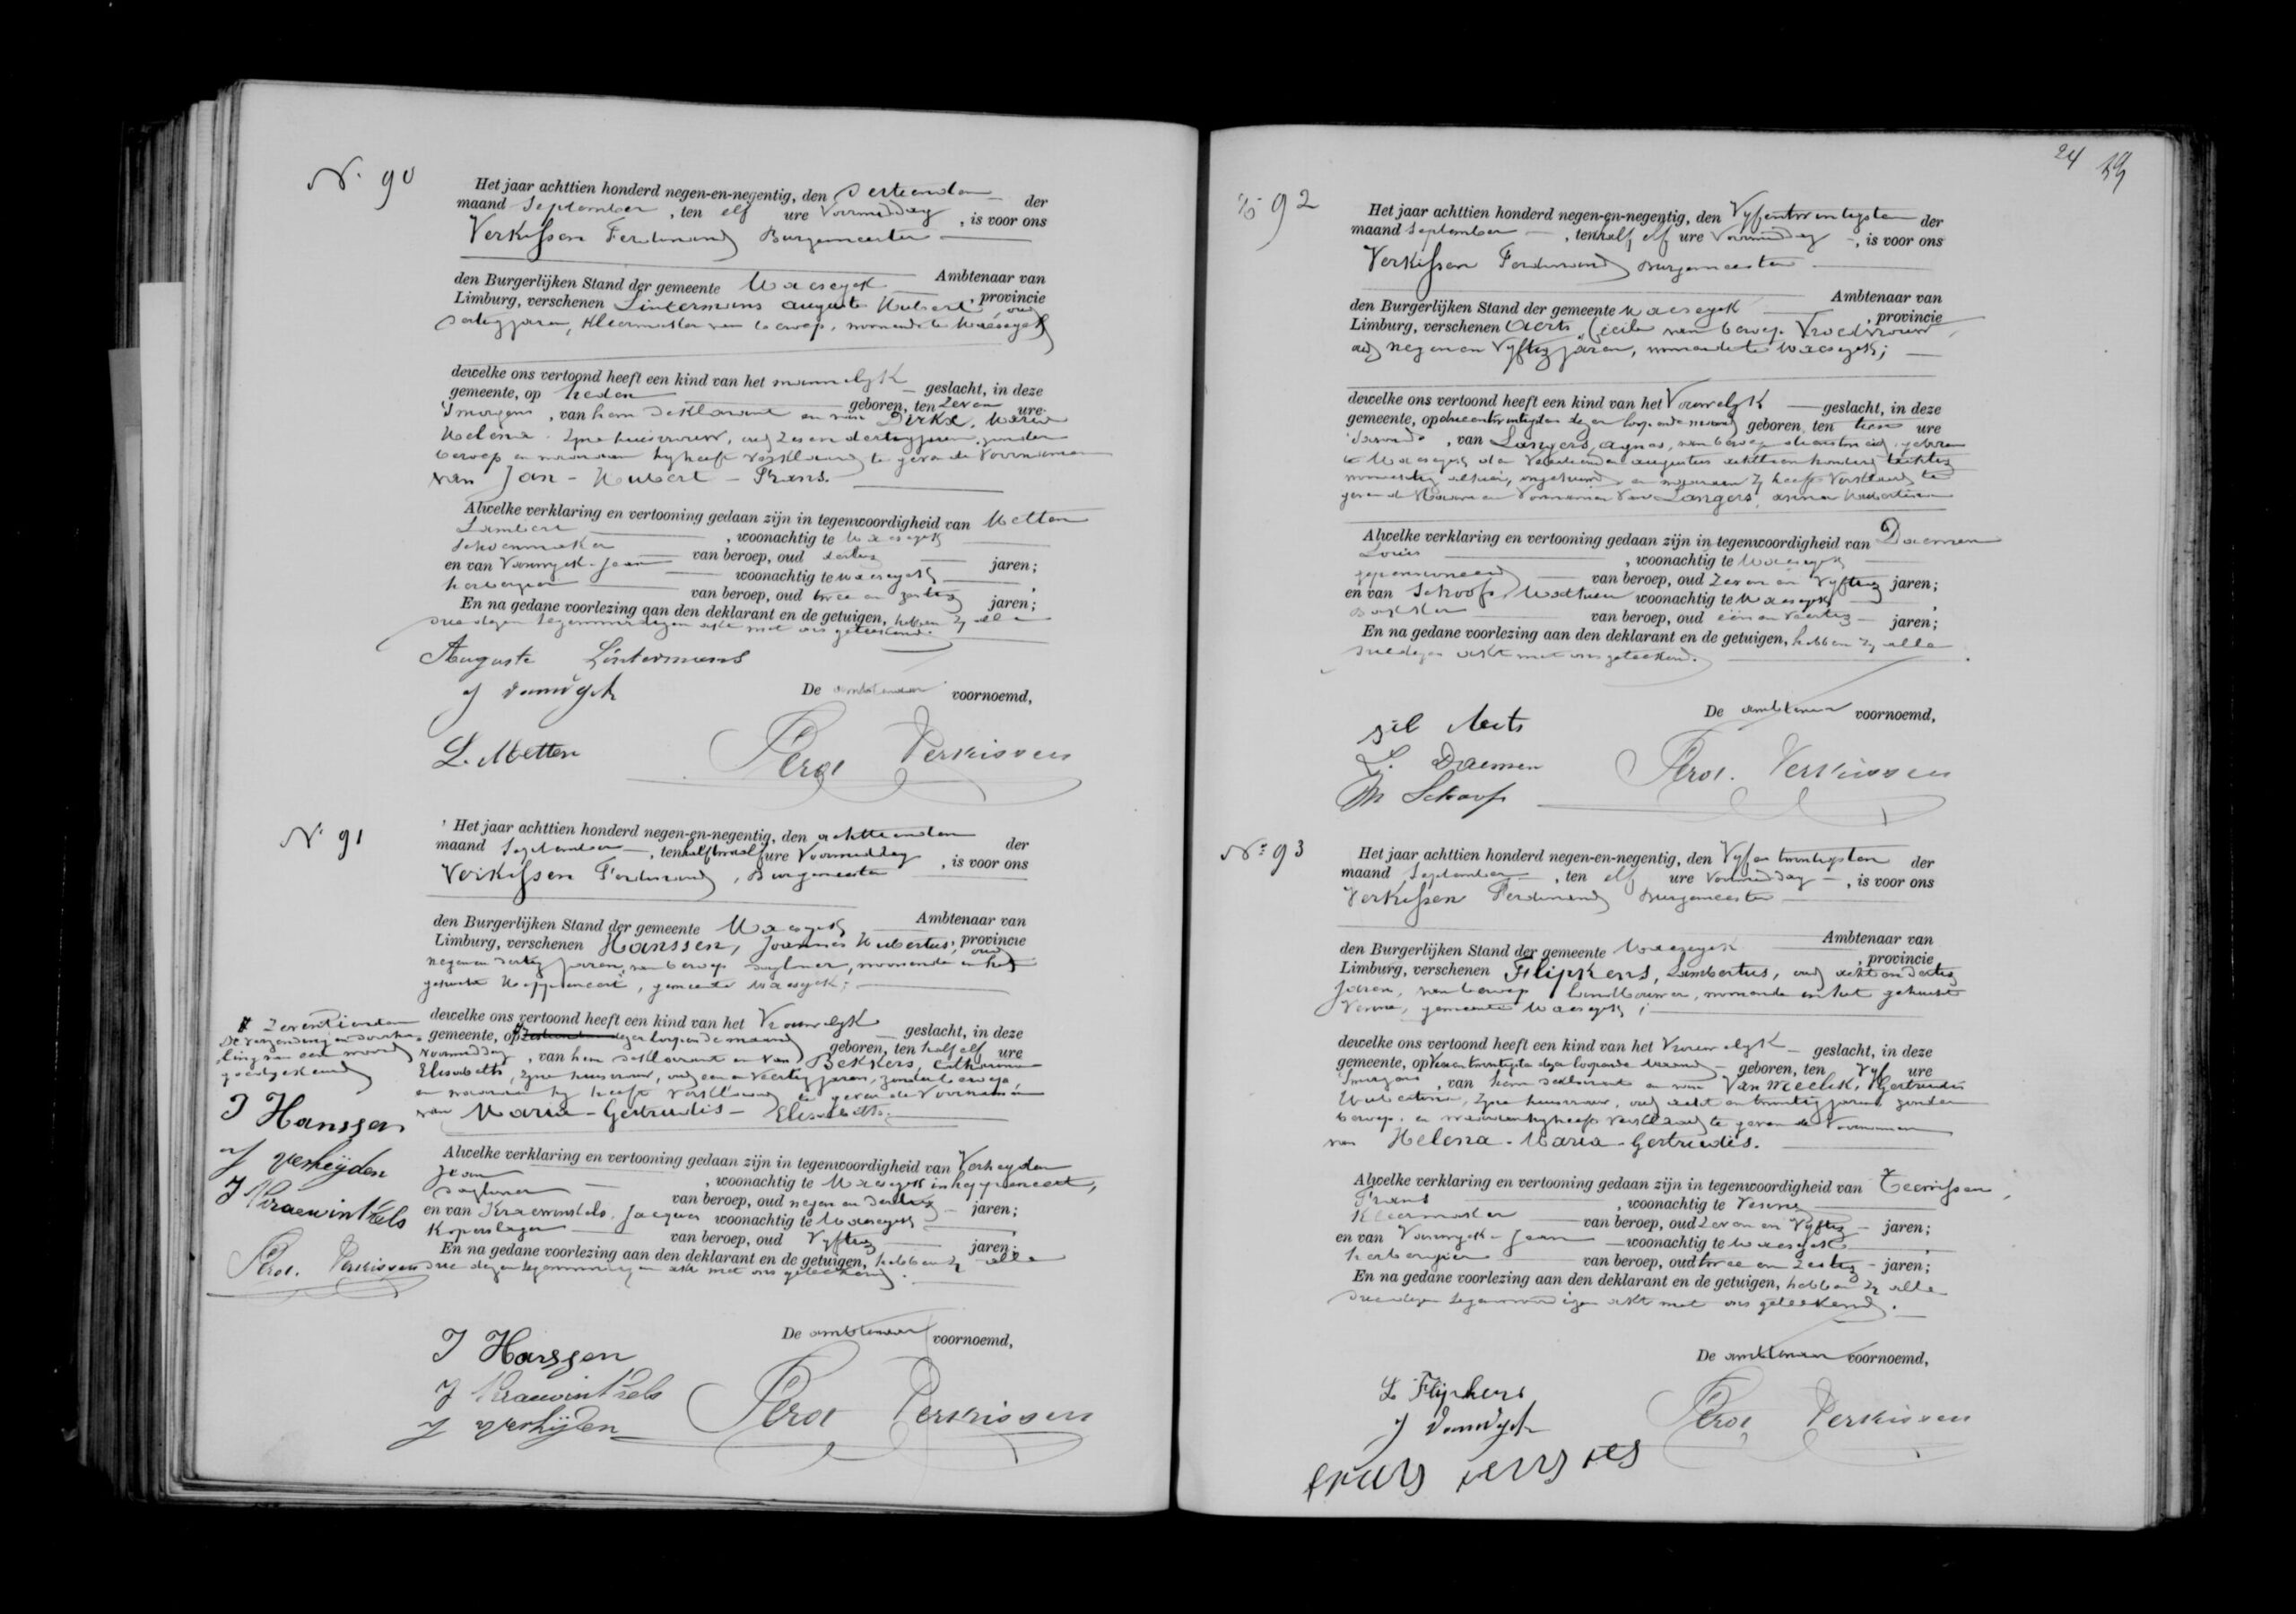 N. 90
Het jaar achttien honderd negen-en-negentig, den dertienden der
maand September, ten elf ure Voormiddag, is voor ons
Verkissen Ferdinand Burgemeester
Ambtenaar van
den Burgerlijken Stand der gemeente Maeseyck, provincie
Limburg, verschenen Lintermans Auguste Hubert, oud
dertig jaren, Kleermaker van beroep, woonende te Maeseyck
dewelke ons vertoond heeft een kind van het mannelyk geslacht, in deze
gemeente, op heden geboren, ten zeven ure
's morgens, van hem deklarant en van Dirkx, Maria
Helena zyne huisvrouw, oud zes en dertig jaren zonder
beroep en waaraan hy heeft verklaard te geven de Voornamen
van Jan - Hubert - Frans.
Alwelke verklaring en vertooning gedaan zijn in tegenwoordigheid van Metten
Lambert, woonachtig te Maeseyck
Schoenmaker van beroep, oud dertig jaren;
en van Vanwyck Jean woonachtig te Maeseyck;
herbergier van beroep, oud twee en zestig jaren;
En na gedane voorlezing aan den deklarant en de getuigen, hebben zy alle
drie dezen tegenwoordigen akte met ons geteekend.
Auguste Lintermans
J Vanwyck
De ambtenaar voornoemd,
L. Metten
Ferd Verkissen
N. 91
Het jaar achttien honderd negen-en-negentig, den achttienden der
maand September, ten half twaalf ure Voormiddag, is voor ons
Verkissen Ferdinand, Burgemeester
Ambtenaar van
den Burgerlijken Stand der gemeente Maeseyck, provincie
Limburg, verschenen Hanssen, Joannes Hubertus, oud
negen en dertig jaren, van beroep dagloner, woonende in het
gehucht Heppeneert, gemeente Maeseyck;
dewelke ons vertoond heeft een kind van het Vrouwelyk geslacht, in deze
gemeente, op dezer loopende maand geboren, ten half elf ure
voormiddag, van hem deklarant en van Bekkers, Catharina
Elisabeth, zyne huisvrouw, oud een en veertig jaren, zonder beroep,
en waaraan hy heeft verklaard te geven de Voornamen
van Maria - Gertrudis - Elisabeth.
zeventienden
De verzending en doorha-
ling van een woord
goedgekeurd
J Hanssen
J Verheyden
J Kraewinkels
Ferd. Verkissen
Alwelke verklaring en vertooning gedaan zijn in tegenwoordigheid van Verheyden
Jean, woonachtig te Maeseyck in heppeneert,
dagloner van beroep, oud negen en dertig jaren;
en van Kraewinkels, Jacques woonachtig te Maeseyck;
Koperslager van beroep, oud Vyftig jaren;
En na gedane voorlezing aan den deklarant en de getuigen, hebben zy alle
drie dezen tegenwoordigen akte met ons geteekend.
De ambtenaar voornoemd,
J Hanssen
J Kraewinkels
J Verheyden
Ferd Verkissen
24
92
Het jaar achttien honderd negen-en-negentig, den Vyfentwintigsten der
maand September, ten half elf ure Voormiddag, is voor ons
Verkissen Ferdinand Burgemeester
Ambtenaar van
den Burgerlijken Stand der gemeente Maeseyck, provincie
Limburg, verschenen Aerts, Cecile van beroep Vroedvrouw,
oud negen en Vyftig jaren, woonende te Maeseyck;
dewelke ons vertoond heeft een kind van het Vrouwelyk geslacht, in deze
gemeente, op drieentwintigsten dezer loopende maand geboren, ten tien ure
's avonds, van Langers, Agnes, van beroep dienstmeid, geboren
te Maeseyck den augustus achttien honderd
woonachtig alhier, ongehuwd en waaraan zy heeft verklaard te
geven de Naam en Voornamen van Langers, Anna Hubertina
Alwelke verklaring en vertooning gedaan zijn in tegenwoordigheid van Daemen
Louis, woonachtig te Maeseyck
gepensioneerd van beroep, oud zeven en Vyftig jaren;
en van Schoofs, Mathieu woonachtig te Maeseyck;
Bakker van beroep, oud één en veertig jaren;
En na gedane voorlezing aan den deklarant en de getuigen, hebben zy alle
drie dezen akte met ons geteekend.
De ambtenaar voornoemd,
Aerts
L. Daemen
M Schoofs
Ferd. Verkissen
No 93
Het jaar achttien honderd negen-en-negentig, den Vyfentwintigsten der
maand September, ten elf ure Voormiddag, is voor ons
Verkissen Ferdinand Burgemeester
Ambtenaar van
den Burgerlijken Stand der gemeente Maeseyck, provincie
Limburg, verschenen Flipkens, Lambertus, oud acht en dertig
jaren, van beroep landbouwer, woonende in het gehucht
Venne, gemeente Maeseyck;
dewelke ons vertoond heeft een kind van het Vrouwelyk geslacht, in deze
gemeente, op vierentwintigsten dezer loopende maand geboren, ten Vyf ure
's morgens, van hem deklarant en van Van Meelick, Gertrudis
Hubertina, zyne huisvrouw, oud acht en twintig jaren, zonder
beroep, en waaraan hy heeft verklaard te geven de Voornamen
van Helena - Maria - Gertrudis.
Alwelke verklaring en vertooning gedaan zijn in tegenwoordigheid van Teenissen,
Frans, woonachtig te Venne
Kleermaker van beroep, oud zeven en Vyftig jaren;
en van Vanwyck Jean woonachtig te Maeseyck;
herbergier van beroep, oud twee en zestig jaren;
En na gedane voorlezing aan den deklarant en de getuigen, hebben zy alle
drie dezen tegenwoordigen akte met ons geteekend.
De ambtenaar voornoemd,
L Flipkens
J Vanwyck
Ferd Verkissen